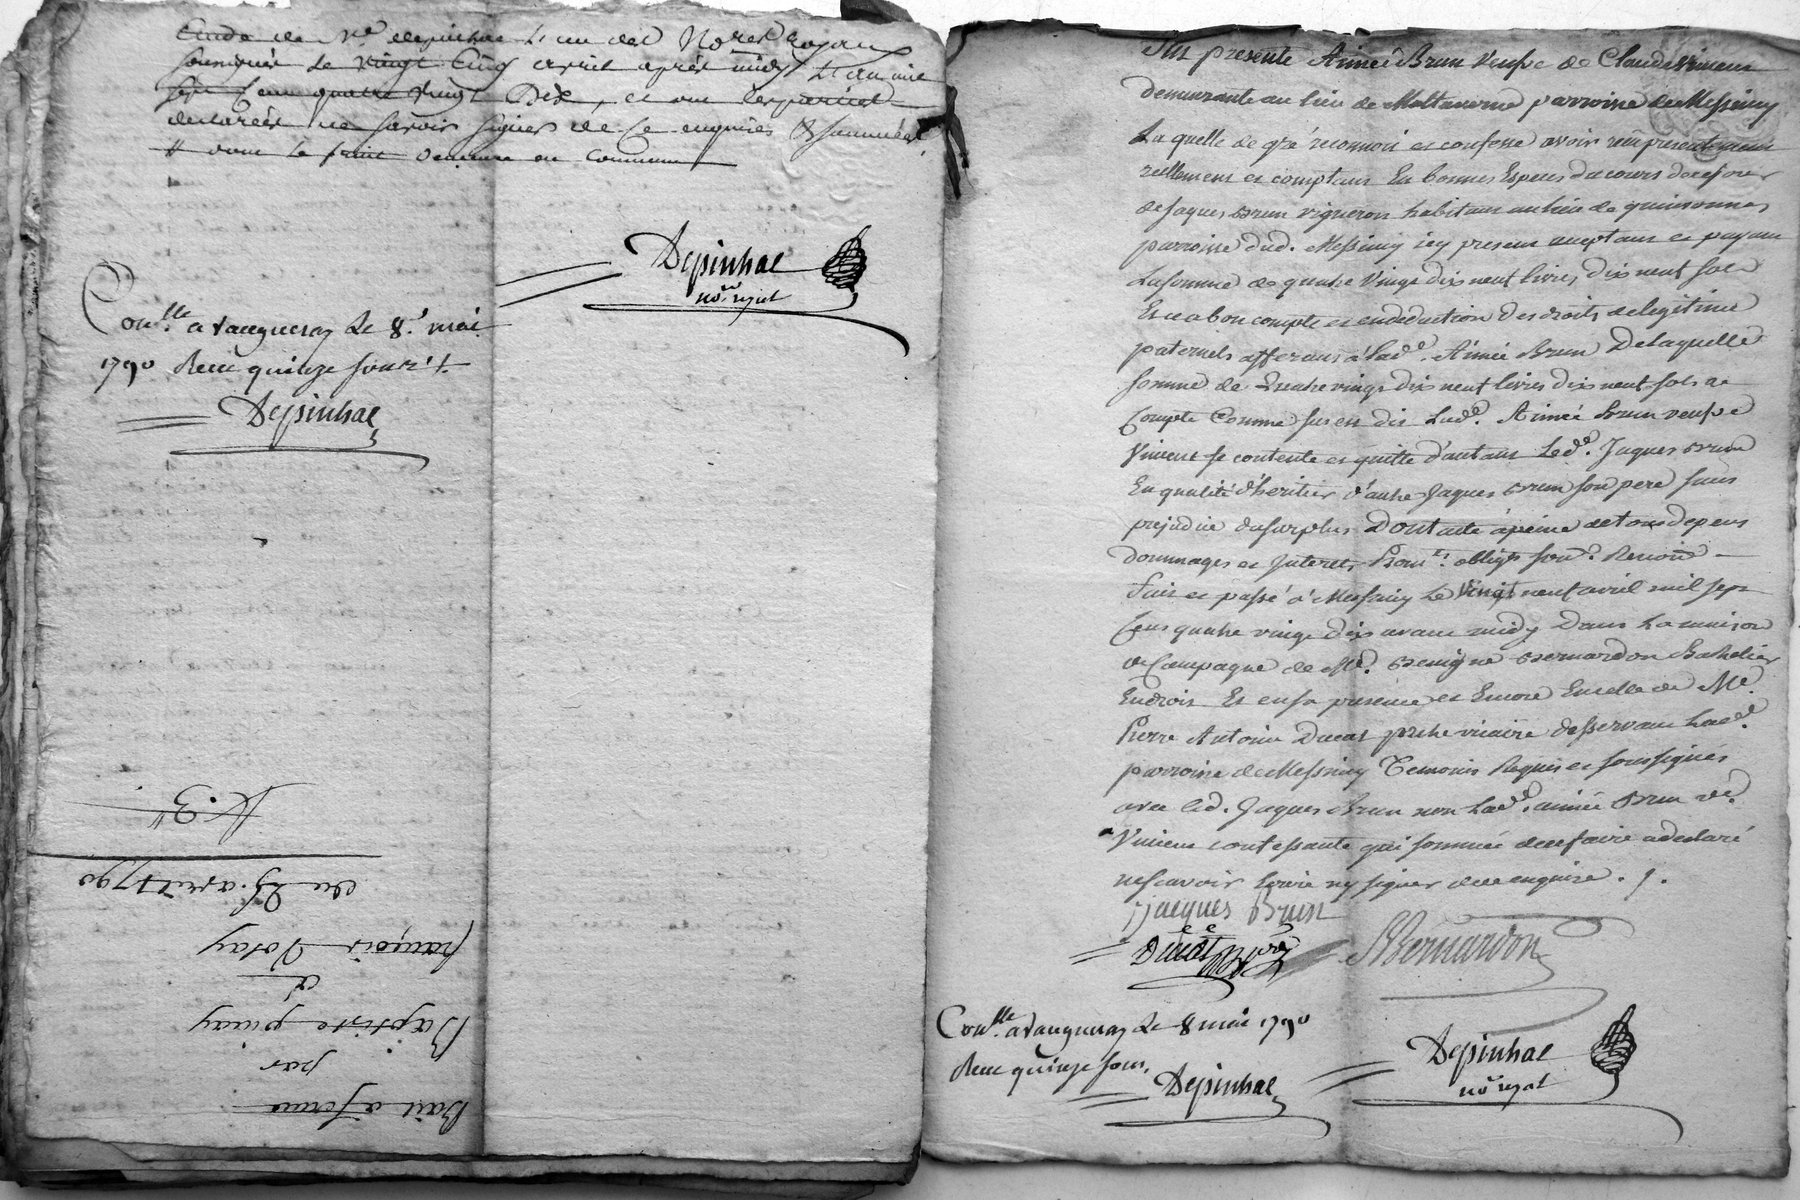 Etude de Me depinhac L'un des Nores Royaux
soussignés Le vingt Cinq avril après midy L'an mil
sept Cent quatre vingt Dix, et ont lesparties
declarées ne savoir signer de Ce enquises & sommées
Depinhac
nore royal
Conlle a vaugneray Le 8e mai
1790 Reçu quinze sous
Depinhac
N. 3
du 25 avril 1790
françois Votay
a
Baptiste pinay
par
Bail a ferme
Fut presente Aimée Brun veufve de Claude Vincent
demeurante au lieu de Maltaverne parroisse de Messimy
La quelle de gré reconnoi et confesse avoir reçu presentement
reellement et comptant En bonnes Especes du cours de ce jour
de Jaques Brun vigneron habitant au lieu de quinsonnas
parroisse dud. Messimy icy present acceptant et payant
La somme de quatre Vingt dix neuf livres dix neuf sols
Et ce a bon compte et en deduction des droits de legitime
paternels afferans à Lade. Aimée Brun De laquelle
somme de Quatre vingt dix neuf livres dix neuf sols a
Compte Comme sus est dit Lade. Aimée Brun veufve
Vincent se contente et quitte d'autant Led. Jaques Brun
En qualité d'heritier d'autre Jaques Brun son pere sans
prejudice du surplus Dont acte à peine de tous depens
dommages et Interets, Promts. obligts soum. Renonc
Fait et passé à Messimy Le Vingt neuf avril mil sept
Cent quatre vingt dix avant midy Dans La maison
de Campagne de Me. Benigne Bernardon Bachelier
En droit Et en sa presence et Encore En celle de Me.
Pierre Antoine Ducat pretre vicaire desservant Lade.
parroisse de Messimy Temoins Requis et soussignés
avec led. Jaques Brun non Lade. aimée Brun ve.
Vincent confessante qui sommée de ce faire a declaré
ne scavoir Ecrire ny signer de ce enquise.
jjacques Brun
Ducat
Bernardon
Conlle. a vaugneray Le 8 mai 1790
Reçu quinze sous,
Depinhac
Depinhac
nore royal